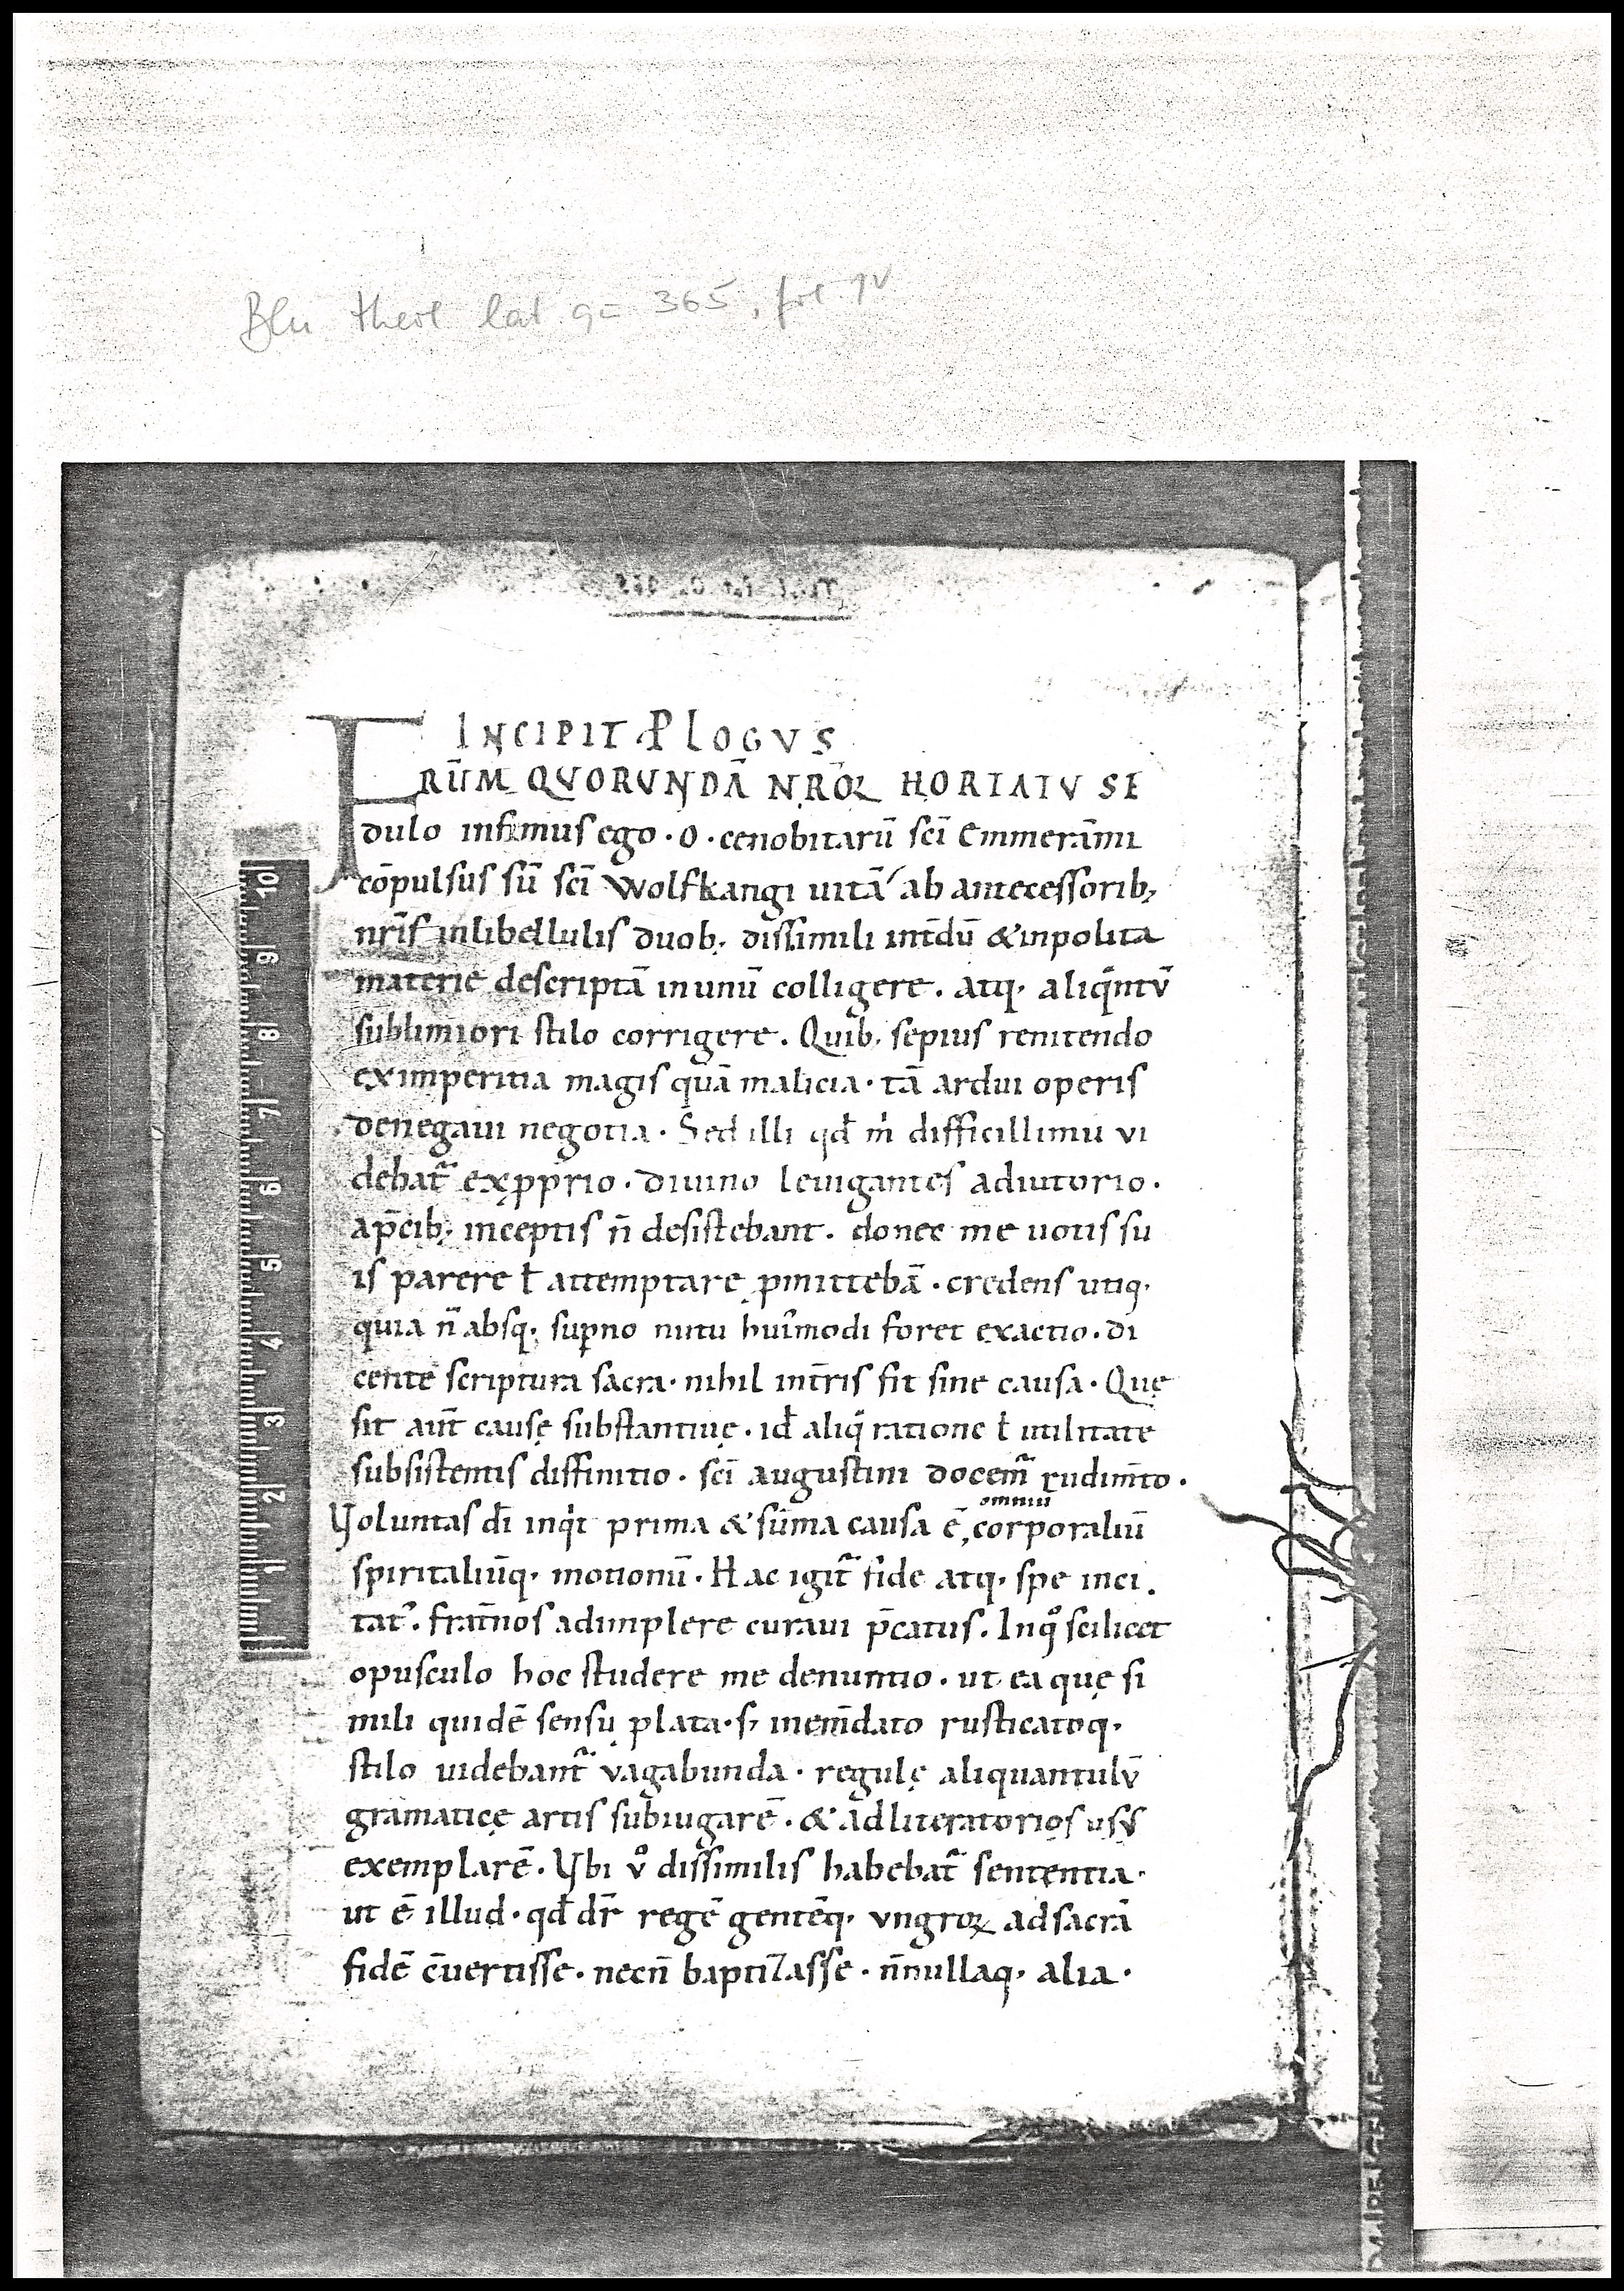 Bln theol lat qº 365, fol 1v
INCIPIT PLOGVS
FRŪM QVORVNDĀ NR̄OꝜ HORTATV SE
dulo infimus ego · o · cenobitarū sc̄i emmerāmi
cōpulsus sū sc̄i wolfkangi uitā ab antecessorib;
nr̄is inlibellulis duob; dissimili int̄dū &inpolita
materie descriptā inunū colligere. atq; aliqͣntv̄
sublimiori stilo corrigere. Quib; sepius renitendo
eximperitia magis quā malicia · tā ardui operis
denegaui negotia. Sed illi qđ m̍ difficillimu vi
debat᷑ ex ꝓprio · diuino leuigantes adiutorio.
ap̄cib; inceptis n̄ desistebant. donec me uotis su
is parere ł attemptare ꝑmittebā · credens utiq;
quia n̄ absq; suꝑno nutu huīmodi foret exactio. di
cente scriptura sacra. nihil int̄ris fit sine causa. Quę
sit aūt causę substantiuę. id̄ aliqͣ ratione ł utilitate
subsistentis diffinitio. sc̄i augustini docem᷑ rudim̄to.
Voluntas dī inqͥt prima & sūma causa ē, corporaliū
omniū
spiritaliūq; motionū. Hac igit᷑ fide atq; spe inci.
tat᷒. frat̄nos adimplere curaui p̄catus. Inqͦ scilicet
opusculo hoc studere me denuntio. ut ea quę si
mili quidē sensu ꝓlata. s; inem̄dato rusticatoq;
stilo uidebant᷑ vagabunda. regulę aliquantulv̄
gramaticę artis subiugarē. & adliteratorios usv̄
exemplarē. Vbi vͦ dissimilis habebat᷑ sententia.
ut ē illud. qđ dr̄ regē gentēq; vngroꝝ adsacrā
fidē c̄uertisse. necn̄ baptizasse. n̄nullaq; alia.
10
9
8
7
6
5
4
3
2
1